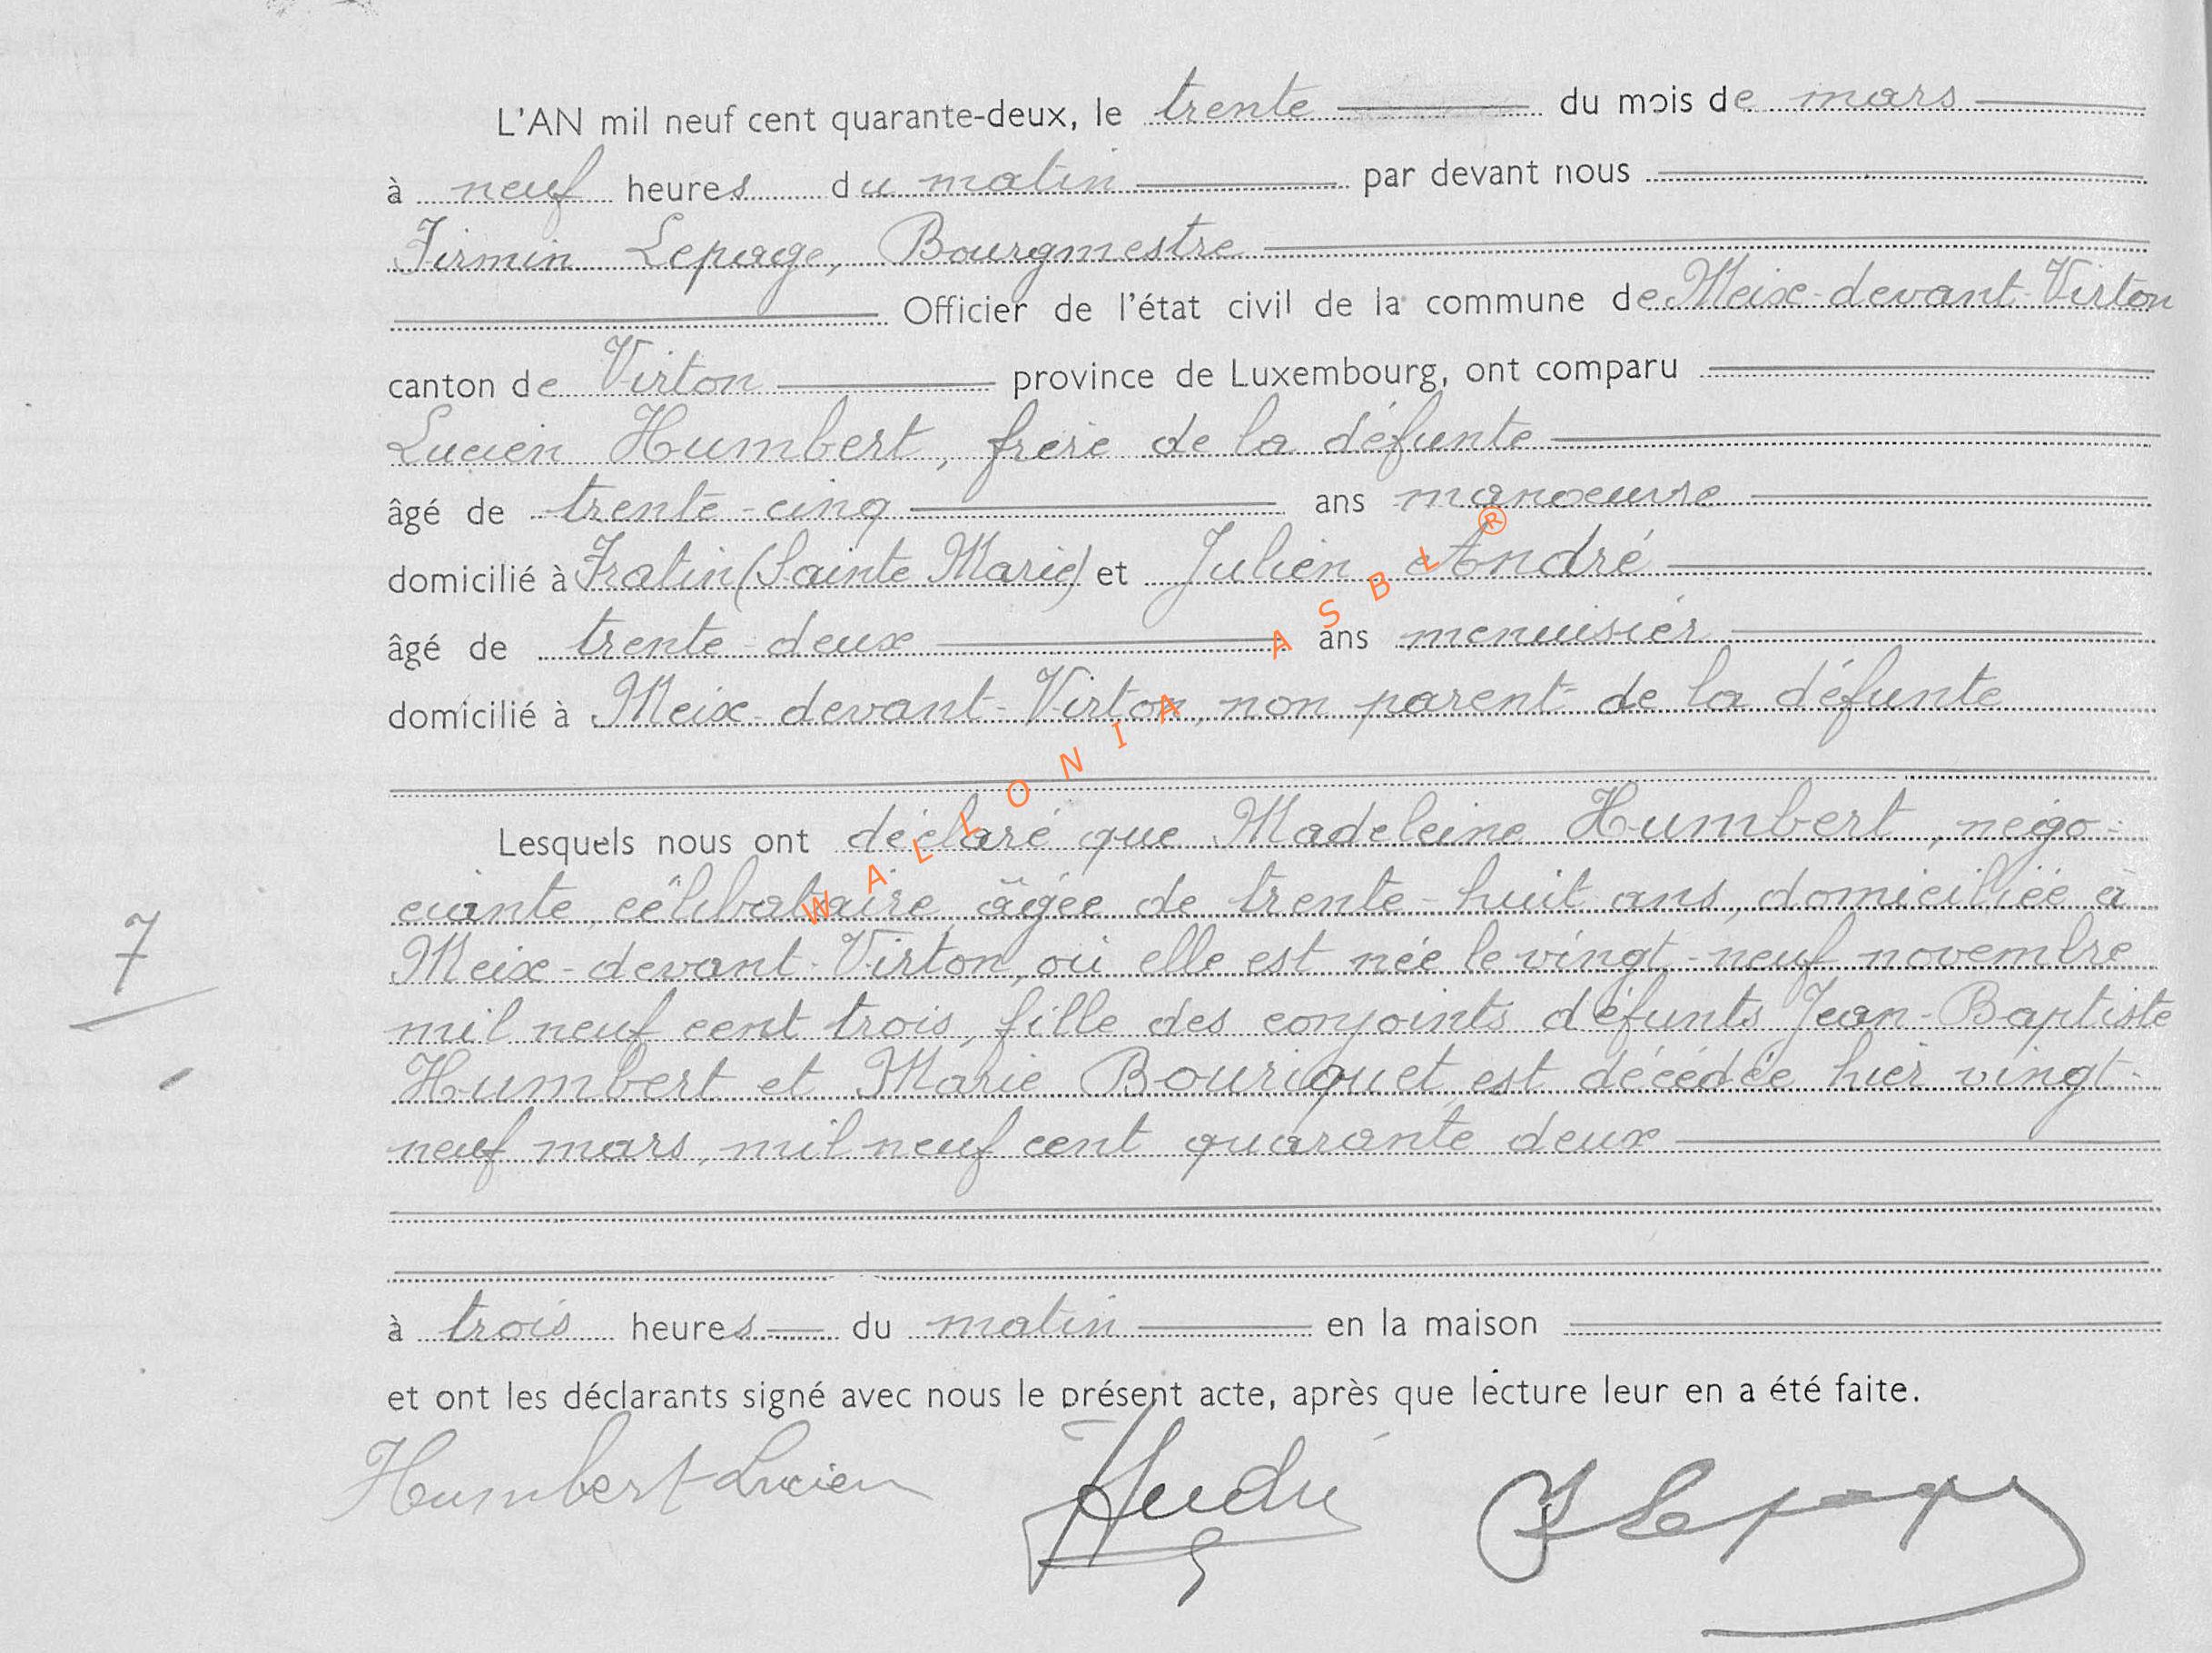 L'AN mil neuf cent quarante-deux, le trente du mois de mars
à neuf heures du matin par devant nous
Firmin Lepage, Bourgmestre
Officier de l'état civil de la commune de Meix-devant-Virton
canton de Virton province de Luxembourg, ont comparu
Lucien Humbert, frère de la défunte
âgé de trente-cinq ans manoeuvre
domicilié à Fratin (Sainte Marie) et Julien André
âgé de trente-deux ans menuisier
domicilié à Meix-devant-Virton, non parent de la défunte
Lesquels nous ont déclaré que Madeleine Humbert, négo-
ciante, célibataire âgée de trente-huit ans, domiciliée à
7
Meix-devant-Virton, où elle est née le vingt-neuf novembre
mil neuf cent trois, fille des conjoints défunts Jean-Baptiste
Humbert et Marie Bouriquet, est décédée hier vingt-
neuf mars, mil neuf cent quarante deux
à trois heures du matin en la maison
et ont les déclarants signé avec nous le présent acte, après que lecture leur en a été faite.
Humbert Lucien André F Lepage
WALLONIA ASBL ®